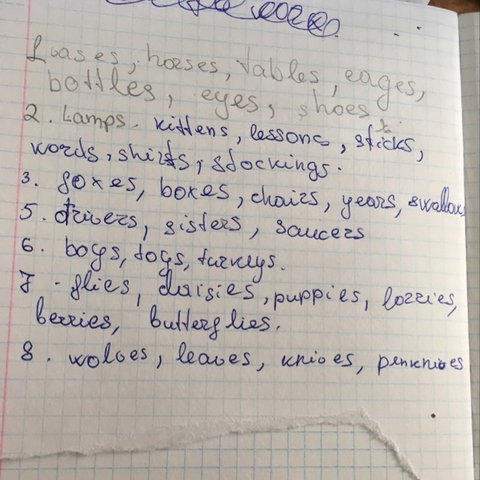 1. vases, horses, tables, cages,
bottles, eyes, shoes
2. Lamps. kittens, lessons, sticks,
words, shirts, stockings.
3. foxes, boxes, chairs, years, swallows
5. drivers, sisters, saucers
6. boys, toys, turkeys.
7. flies, daisies, puppies, lorries,
berries, butterflies.
8. wolves, leaves, knives, penknives